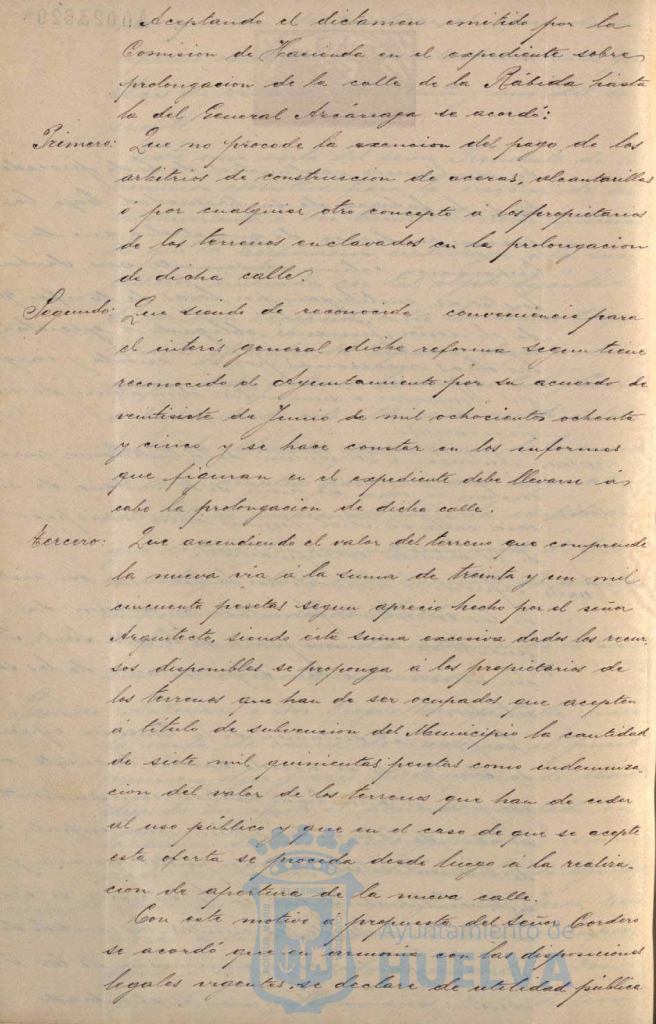 Aceptando el dictamen emitido por la
Comision de Hacienda en el expediente sobre
prolongacion de la calle de la Rábida hasta
la del General Arsánaga se acordó:
Primero: Que no procede la exencion del pago de los
arbitrios de construccion de aceras, alcantarillas
ó por cualquier otro concepto á los propietarios
de los terrenos enclavados en la prolongacion
de dicha calle.
Segundo: Que siendo de reconocida conveniencia para
el interés general dicha reforma segun tiene
reconocido el Ayuntamiento por su acuerdo de
veintisiete de Junio de mil ochocientos ochenta
y cinco y se hace constar en los informes
que figuran en el expediente debe llevarse á
cabo la prolongacion de dicha calle.
Tercero: Que ascendiendo el valor del terreno que comprende
la nueva via á la suma de treinta y un mil
cincuenta pesetas segun aprecio hecho por el señor
Arquitecto, siendo esta suma excesiva dados los recur-
sos disponibles se proponga á los propietarios de
los terrenos que han de ser ocupados que acepten
á título de subvencion del Municipio la cantidad
de siete mil quinientas pesetas como indemniza-
cion del valor de los terrenos que han de ceder
al uso público y que en el caso de que se acepte
esta oferta se proceda desde luego á la realiza-
cion de apertura de la nueva calle.
Con este motivo á propuesta del Señor Cordero
se acordó que en armonia con las disposiciones
legales vigentes, se declare de utilidad pública
Ayuntamiento de
HUELVA